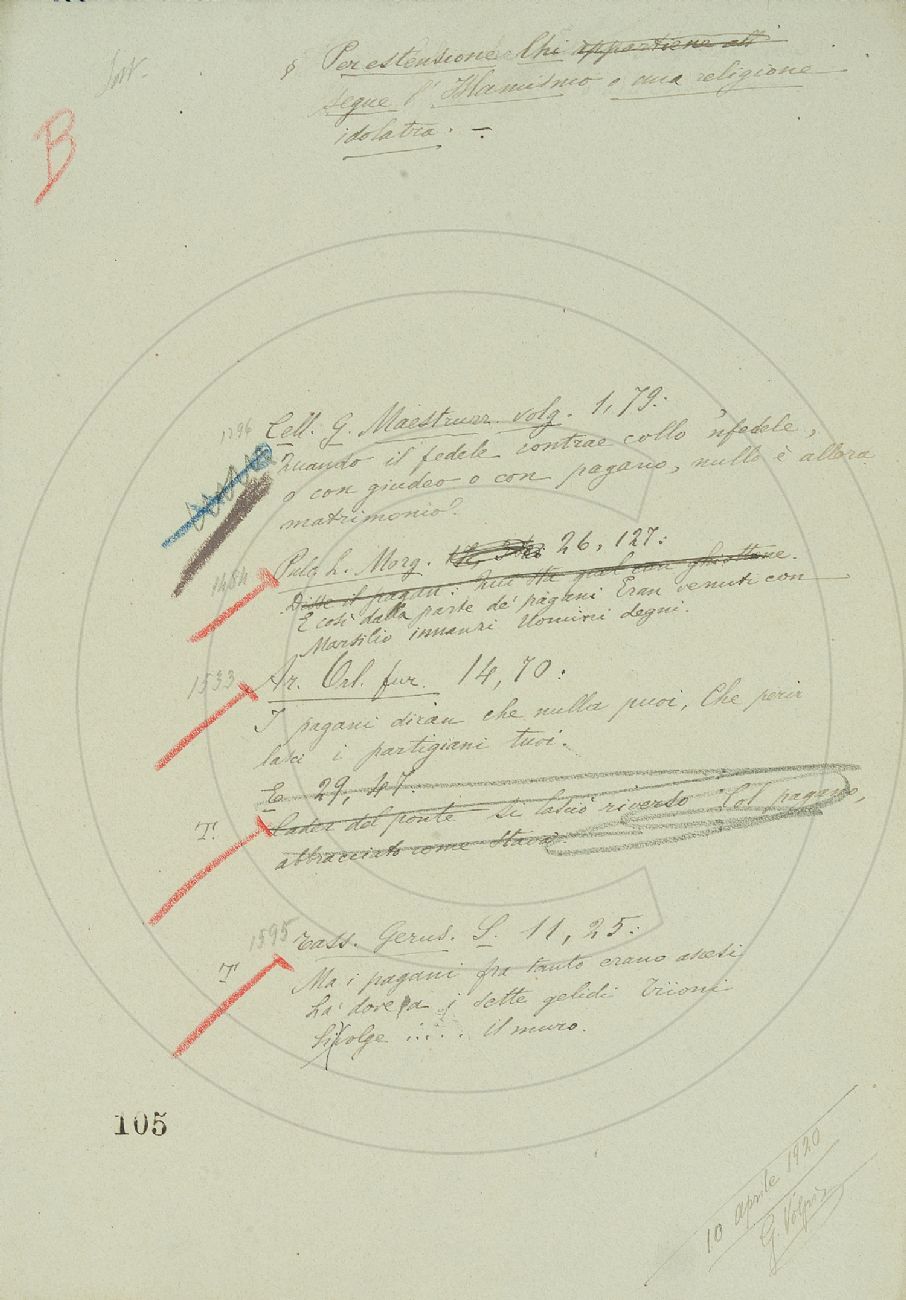 Sost.
§ Per estensione Chi appartiene all'
segue l'Islamismo o una religione
idolatra. —
B
1296 Cell. G. Maestruzz. volg. 1, 79:
Quando il fedele contrae collo 'nfedele,
o con giudeo o con pagano, nullo è allora
matrimonio?
1484 Pulc. L. Morg. 26, 127:
Disse il pagan: ghiottone.
E così dalla parte de' pagani Eran venuti con
Marsilio innanzi Uomini degni.
1533 Ar. Orl. fur. 14, 70:
I pagani diran che nulla puoi, Che perir
lasci i partigiani tuoi.
E 29, 47:
T. Cader del ponte si lasciò riverso Col pagano,
abbracciato come stava.
1595 Tass. Gerus. L. 11, 25:
T Ma i pagani fra tanto erano ascesi
Là dove a i sette gelidi Trioni
Si volge ..... il muro.
105
10 aprile 1920
G. Volpi